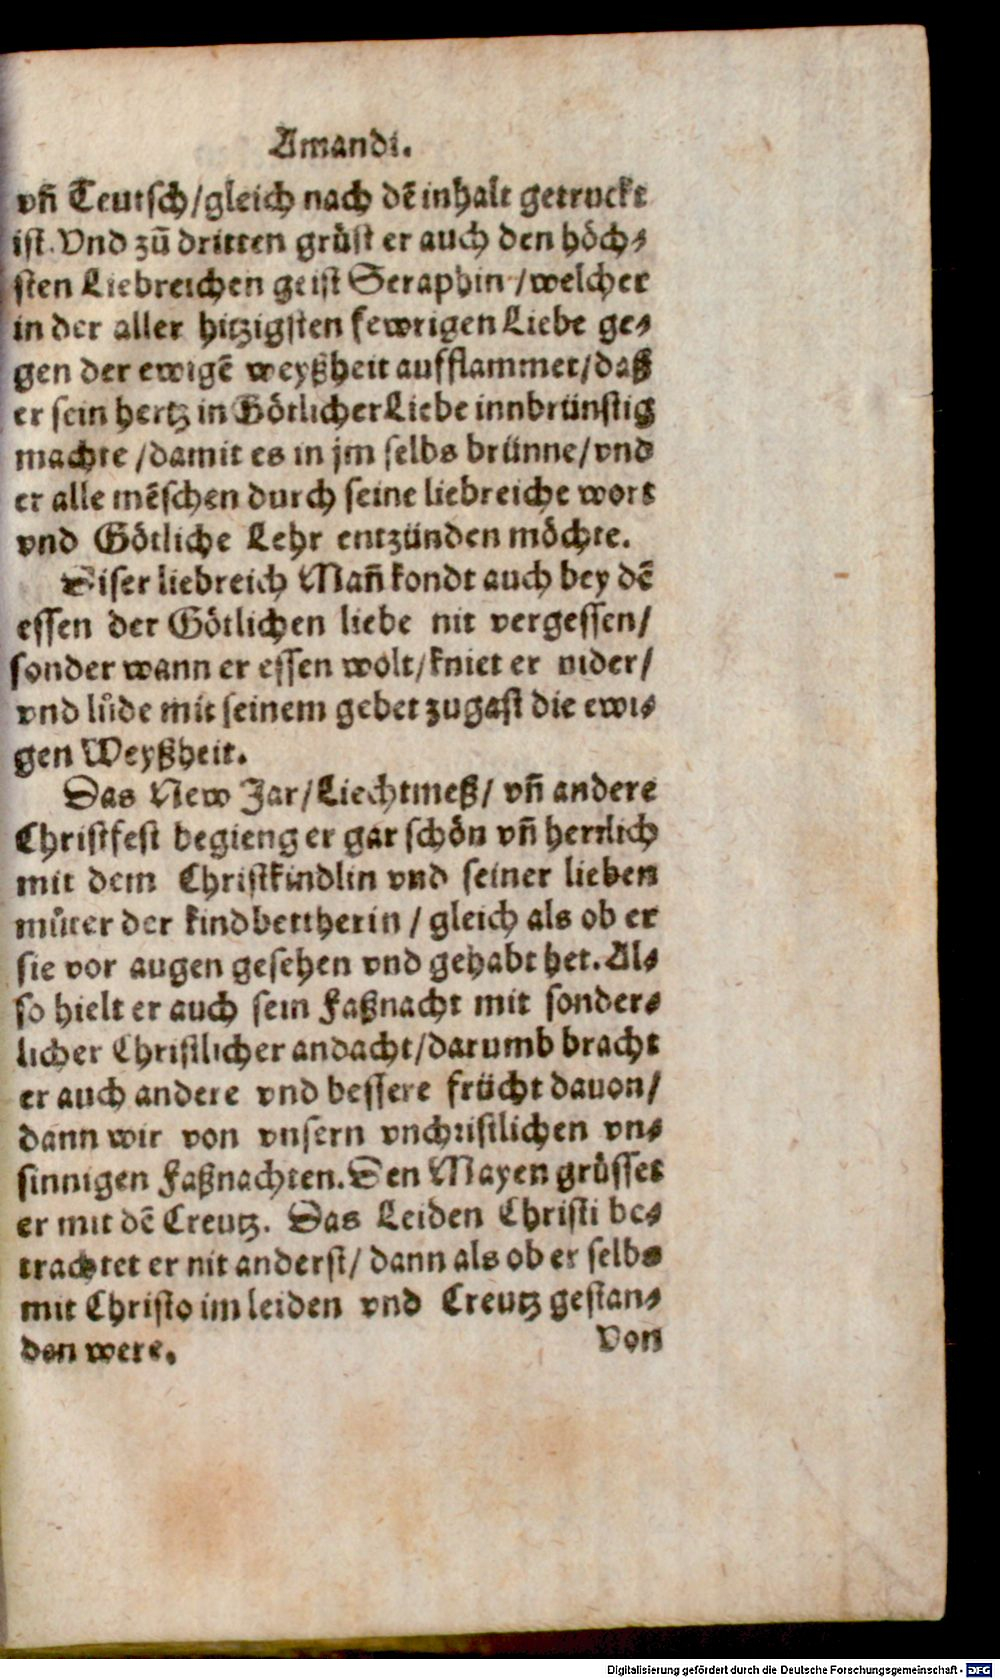 Amandi.
vn̄ Teutsch/gleich nach dē inhalt getruckt
ist. Vnd zū dritten grüst er auch den höch⸗
sten Liebreichen geist Seraphin/welcher
in der aller hitzigsten fewrigen Liebe ge⸗
gen der ewigē weyßheit aufflammet/daß
er sein hertz in Götlicher Liebe innbrünstig
machte/damit es in jm selbs brünne/vnd
er alle mēschen durch seine liebreiche wort
vnd Götliche Lehr entzünden möchte.
Diser liebreich Man̄ kondt auch bey dē
essen der Götlichen liebe nit vergessen/
sonder wann er essen wolt/kniet er nider/
vnd lůde mit seinem gebet zugast die ewi⸗
gen Weyßheit.
Das New Jar/Liechtmeß/ vn̄ andere
Christfest begieng er gar schön vn̄ herrlich
mit dem Christkindlin vnd seiner lieben
můter der kindbettherin/gleich als ob er
sie vor augen gesehen vnd gehabt het. Al⸗
so hielt er auch sein Faßnacht mit sonder⸗
licher Christlicher andacht/darumb bracht
er auch andere vnd bessere frücht dauon/
dann wir von vnsern vnchristlichen vn⸗
sinnigen Faßnachten. Den Mayen grüsset
er mit dē Creutz. Das Leiden Christi be⸗
trachtet er nit anderst/ dann als ob er selbs
mit Christo im leiden vnd Creutz gestan⸗
den were.
Von
Digitalisierung gefördert durch die Deutsche Forschungsgemeinschaft - DFG